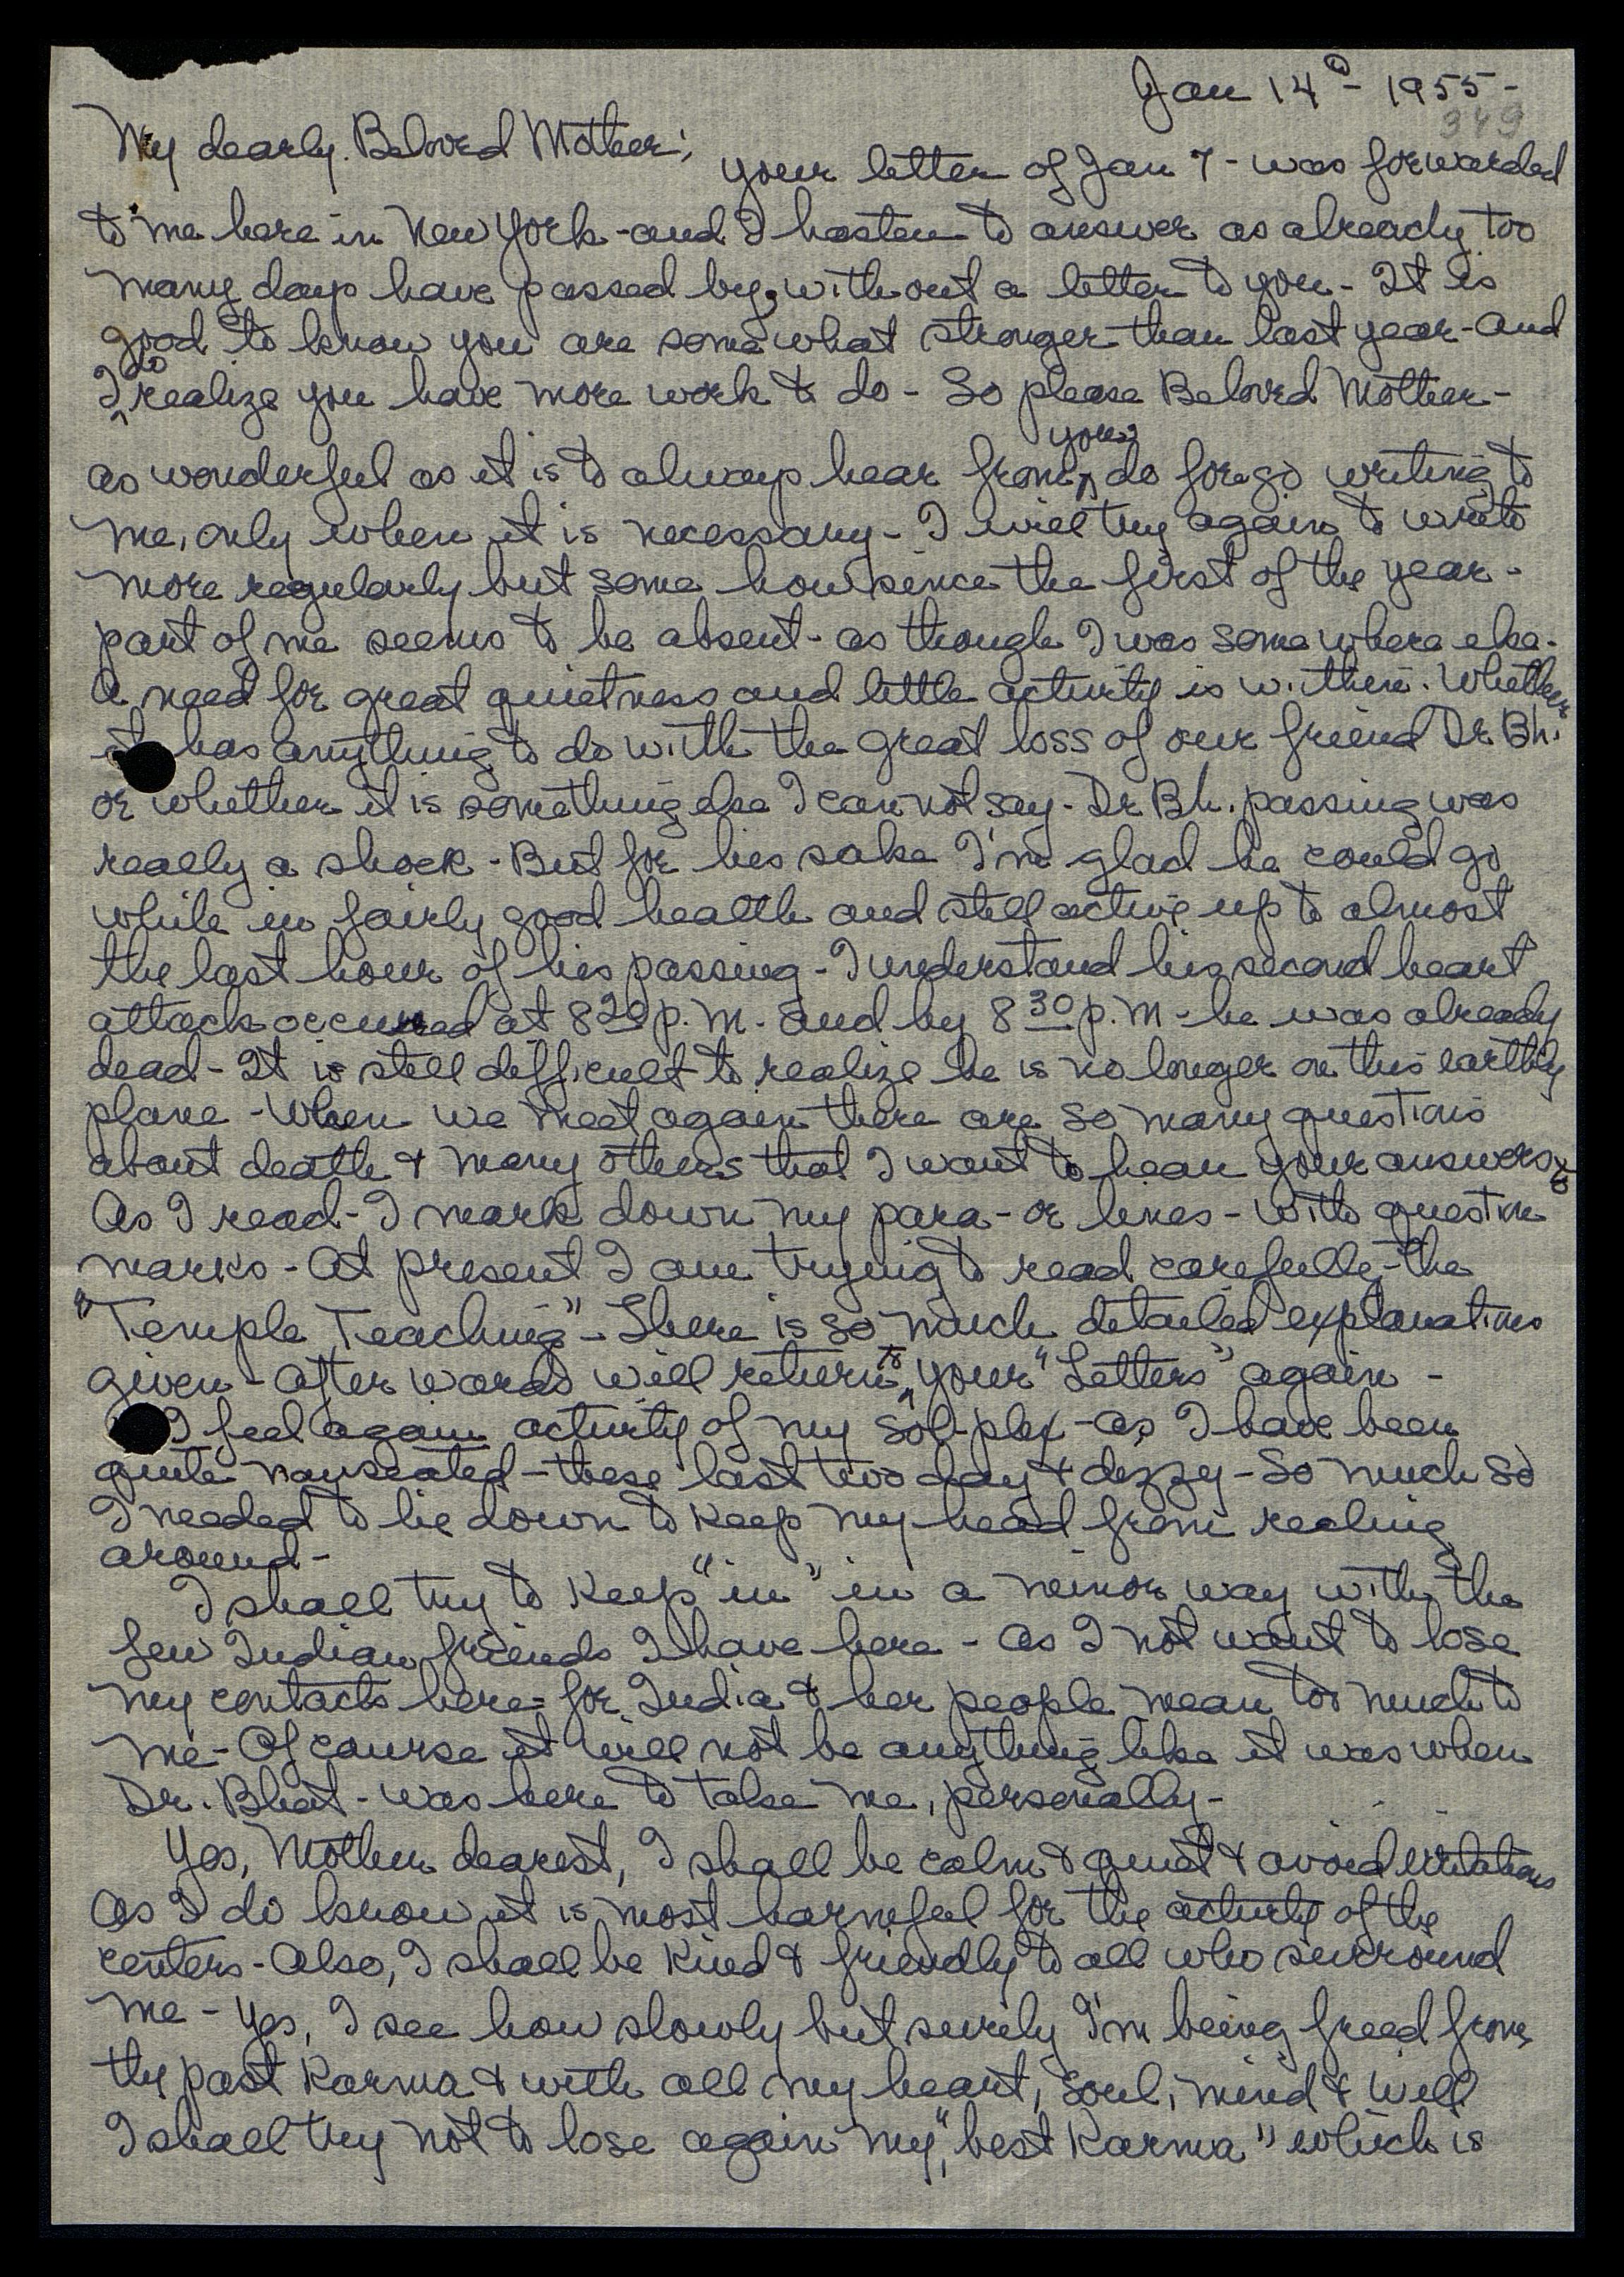 Jan 14th - 1955 -
349
My dearly Beloved Mother;
your letter of Jan 7 - was forwarded
to me here in New York - and I hasten to answer as already too
many days have passed by, without a letter to you - It is
good to know you are somewhat stronger than last year - and
I do realize you have more work to do - So please Beloved Mother -
as wonderful as it is to always hear from you, do forego writing to
me, only when it is necessary - I will try again to write
more regularly but some how since the first of the year -
part of me seems to be absent - as though I was somewhere else.
A need for great quietness and little activity is within. Whether
it has anything to do with the great loss of our friend Dr Bh.
or whether it is something else I cannot say - Dr Bh. passing was
really a shock - But for his sake I'm glad he could go
while in fairly good health and still active up to almost
the last hour of his passing - I understand his second heart
attack occurred at 8 20 p.m. and by 8 30 p.m - he was already
dead - It is still difficult to realize he is no longer on this earthly
plane - When we meet again there are so many questions
about death & many others that I want to hear your answers to
As I read - I mark down my para - or lines - with question
marks - At present I am trying to read carefully - the
"Temple Teaching" - There is so much detailed explanations
given - After wards will return to your "Letters" again -
I feel again activity of my Sol-plex - as I have been
quite nauseated - these last two day & dizzy - So much so
I needed to lie down to keep my head from reeling
around -
I shall try to keep "in" in a minor way with the
few Indian friends I have here - as I not want to lose
my contacts here - for India & her people mean too much to
me - Of course it will not be anything like it was when
Dr. Bhat - was here to take me, personally -
Yes, Mother dearest, I shall be calm & quiet & avoid irritations
as I do know it is most harmful for the activity of the
centers - Also, I shall be kind & friendly to all who surround
me - Yes, I see how slowly but surely I'm being freed from
the past Karma & with all my heart, soul, mind & will
I shall try not to lose again my, "best Karma" which is